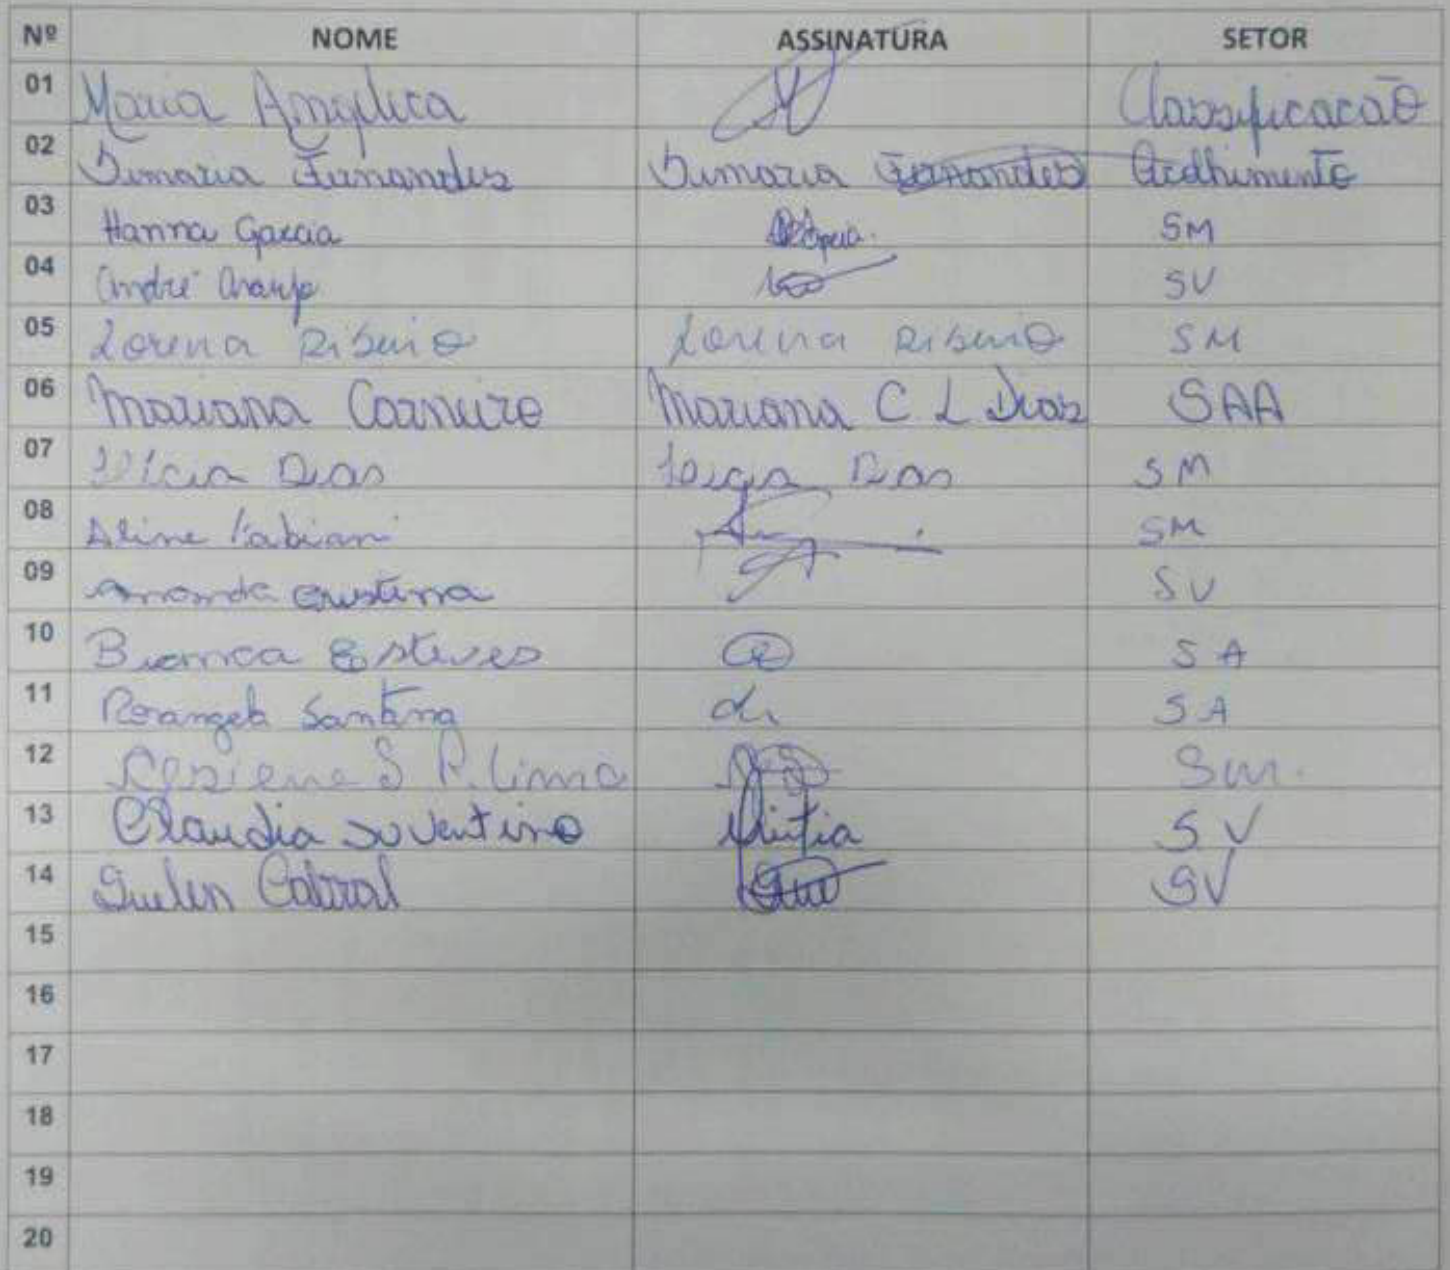 Nº NOME ASSINATURA SETOR
01 Maria Angelica Classificacaõ
02 Sumaria Fernandes Sumaria Fernandes Acolhimento
03 Hanna Garcia SM
04 André Araujo SV
05 Lorena Ribeiro Lorena Ribeiro SM
06 Mariana Carneiro Mariana C L Dias SAA
07 Dias Dias SM
08 Aline Fabiani SM
09 Amanda Cristina SV
10 Bianca Esteves SA
11 Rosangela Santana SA
12 S P. Lima SM.
13 Claudia Juventino SV
14 Suelen Cabral SV
15
16
17
18
19
20